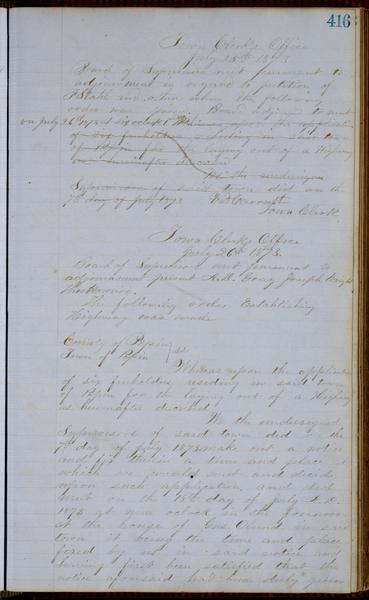 416
Town Clerk's Office
July 25th 1873
Board of Supervisors met pursuant to
adjournment in regard to petition of
and others when the following
order was Board adjourned to meet
on July 26 1873 at six oclock
of six freholders residing in said town
of Pepin for the laying out of a Highway
as hereinafter described
We the undersigned
Supervisors of said town did on the
7th day of July 1873
Town Clerk
Town Clerks Office
July 26th 1873.
Board of Supervisors met pursuant to
adjournment present Gray Joseph
The following order Establishing
Highway was made
County of Pepin
Town of Pepin ss
Whereas upon the application
of six freholders residing in said town
of Pepin for the laying out of a Highway
as hereinafter described
We the undersigned
Supervisors of said town did on the
7th day of July 1873 make out a notice
and fix therein a time and place at
which we would meet and decide
upon such application and did
meet on the 18th day of July A.D.
1873 at nine oclock in the forenoon
at the house of in said
town it being the time and place
fixed by us in said notice and
having first been satisfied that the
notice aforesaid had been duly given